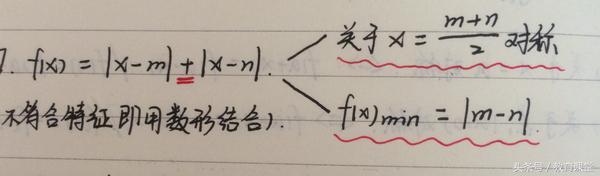 关于 x = (m+n)/2 对称
7. f(x) = |x-m| + |x-n|.
f(x)min = |m-n|.
不符合特征即用数形结合).
头条号 / 教育课堂